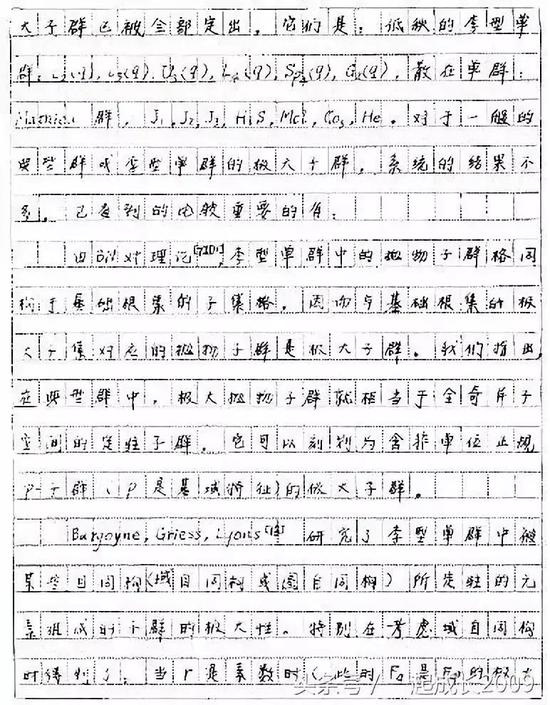 大子群已被全部定出。它们是：低秩的李型单
群：L₂(q), L₃(q), U₃(q), L₄(q), Sp₄(q), G₂(q)，散在单群：
Mathieu 群，J₁, J₂, J₃, HiS, Mcl, Co₃, He。对于一般的
典型群或李型单群的极大子群，系统的结果不
多，已看到的比较重要的有：
由 BN 对理论，李型单群中的抛物子群格同
构于基础根集的子集格，因而与基础根集的极
大子集对应的抛物子群是极大子群。我们指出，
在典型群中，极大抛物子群就相当于全奇异子
空间的定驻子群，它可以刻划为含非单位正规
p-子群（p 是基域特征）的极大子群。
Burgoyne, Griess, Lyons 研究了李型单群中被
某些自同构（域自同构或图自同构）所定驻的元
素组成的子群的极大性。特别在考虑域自同构
时得到了，当 r 是素数时（此时 F 是 F 的极大
头条号/一起成长2009